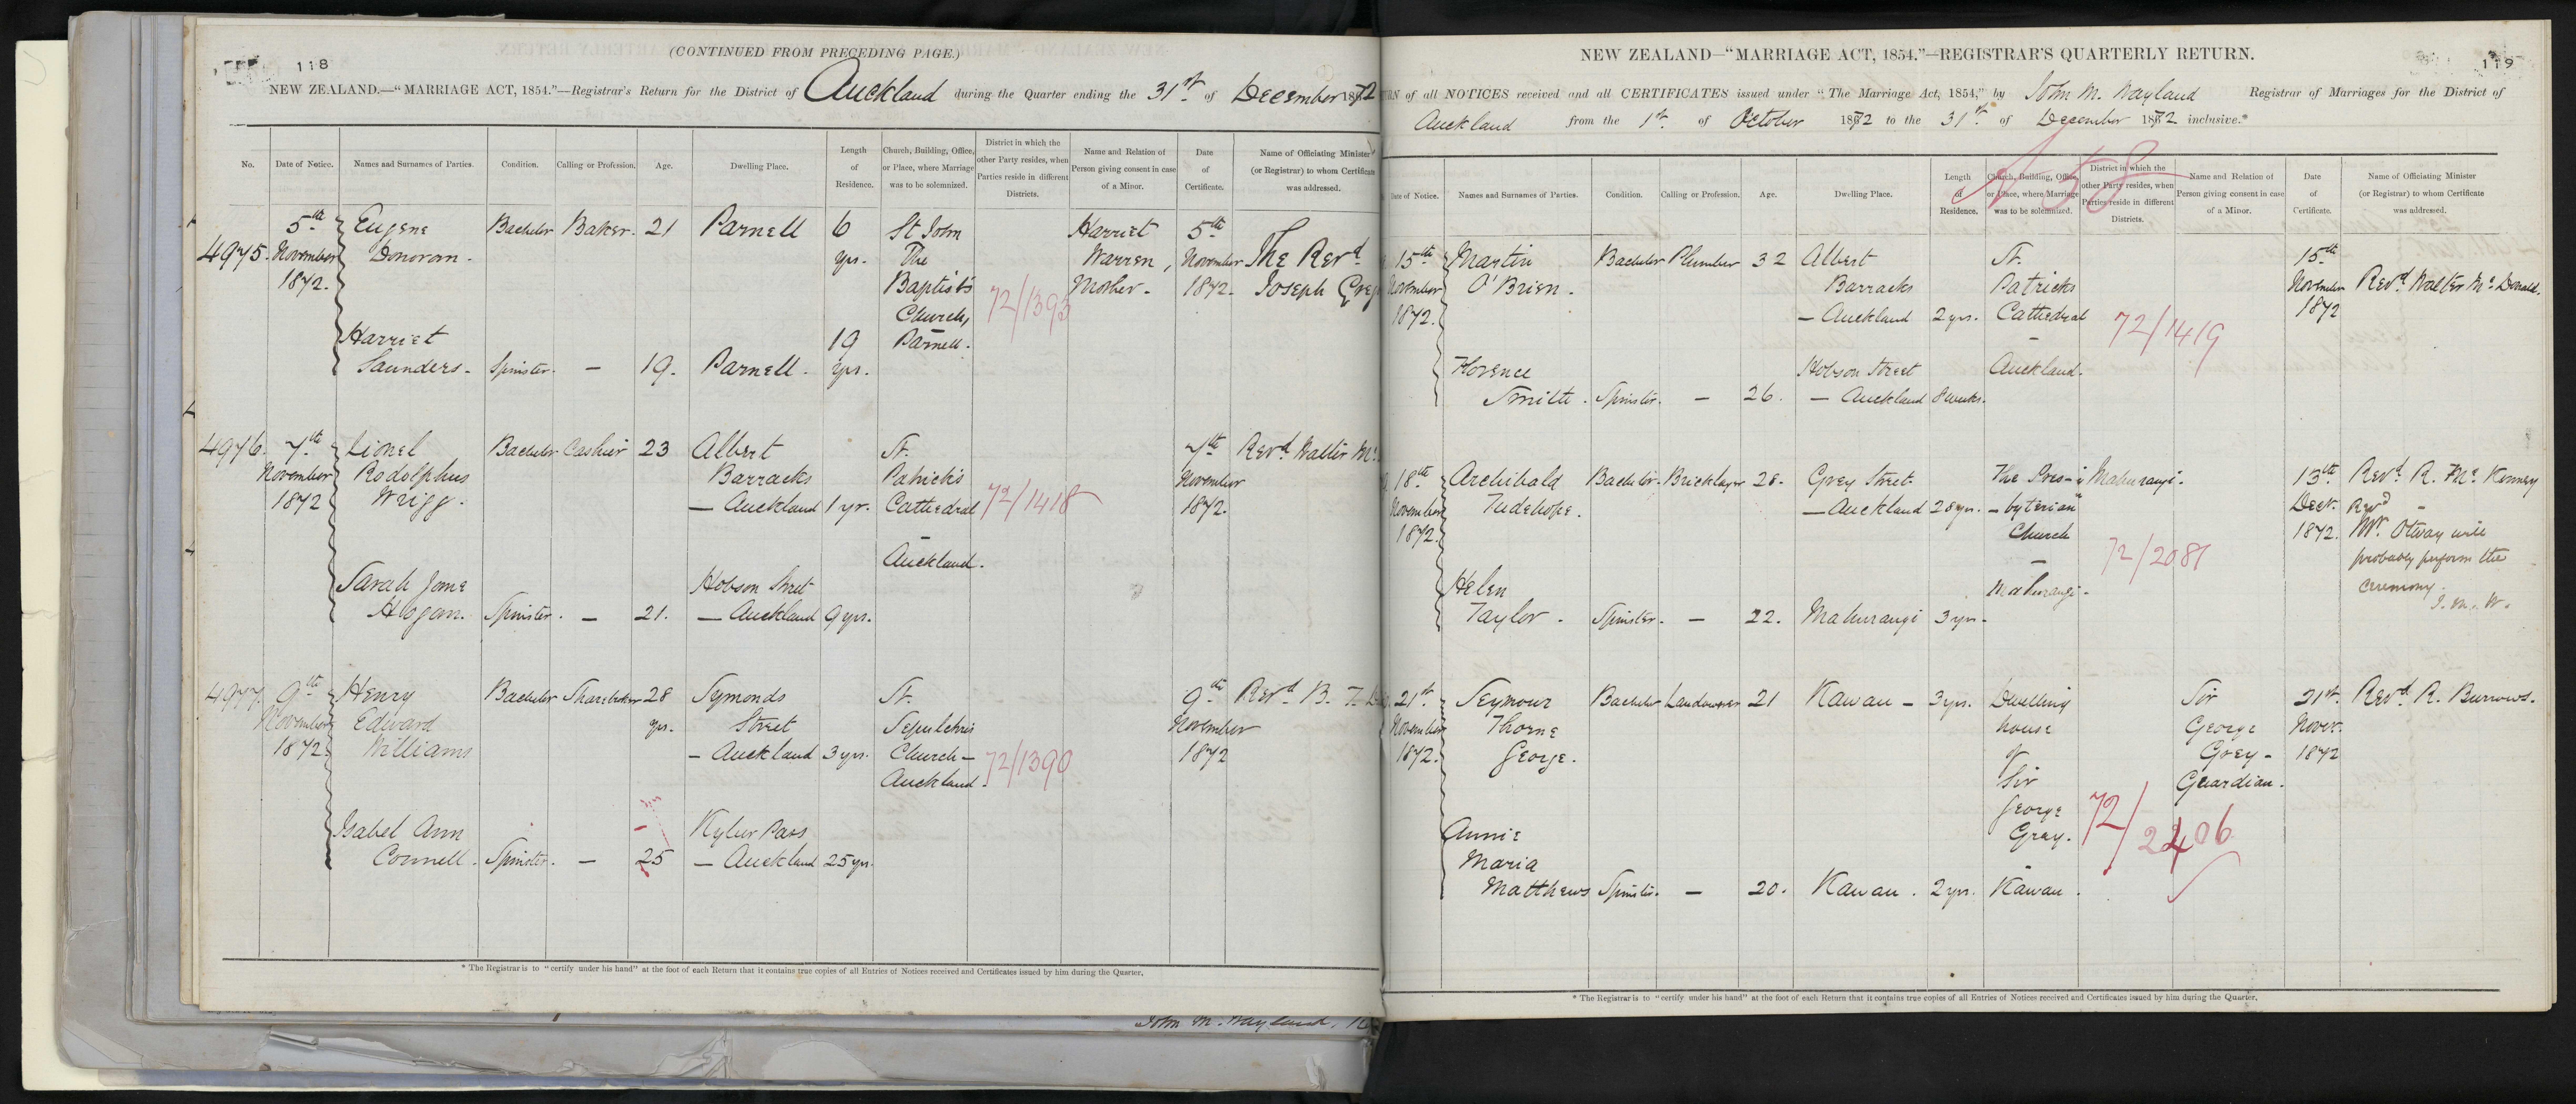 118
(CONTINUED FROM PRECEDING PAGE.)
NEW ZEALAND.—"MARRIAGE ACT, 1854."—Registrar's Return for the District of Auckland during the Quarter ending the 31st. of December 1872
No. Date of Notice. Names and Surnames of Parties. Condition. Calling or Profession. Age. Dwelling Place. Length of Residence. Church, Building, Office, or Place, where Marriage was to be solemnized. District in which the other Party resides, when Parties reside in different Districts. Name and Relation of Person giving consent in case of a Minor. Date of Certificate. Name of Officiating Minister (or Registrar) to whom Certificate was addressed.
5th Eugene Bachelor Baker. 21 Parnell 6 St John Harriet 5th
4975. November Donovan. yrs. The Warren, November The Revd.
1872. Baptist's 72/1393 Mother. 1872. Joseph
Church,
Harriet 19 Parnell.
Saunders. Spinster. — 19. Parnell. yrs.
4976. 7th Lionel Bachelor Cashier 23 Albert St. 7th Revd. Walter Mc.
November Rodolphus Barracks Patrick's November
1872 Wrigg. — Auckland 1 yr. Cathedral 72/1418 1872.
—
Auckland.
Sarah Jane Hobson Street
Hogan. Spinster. — 21. — Auckland 9 yrs.
4977. 9th Henry Bachelor Sharebroker 28 Symonds St. 9th Revd. B. T.
November Edward yrs. Street Sepulchres November
1872. Williams — Auckland 3 yrs. Church — 72/1390 1872
Auckland.
Isabel Ann Kyber Pass
Connell. Spinster. — 25 — Auckland 25 yrs.
* The Registrar is to "certify under his hand" at the foot of each Return that it contains true copies of all Entries of Notices received and Certificates issued by him during the Quarter.
John M. Wayland,
119
NEW ZEALAND—"MARRIAGE ACT, 1854."—REGISTRAR'S QUARTERLY RETURN.
RN of all NOTICES received and all CERTIFICATES issued under "The Marriage Act, 1854," by John M. Wayland Registrar of Marriages for the District of
Auckland from the 1st. of October 1872 to the 31st. of December 1872 inclusive.*
58
Date of Notice. Names and Surnames of Parties. Condition. Calling or Profession. Age. Dwelling Place. Length of Residence. Church, Building, Office, or Place, where Marriage was to be solemnized. District in which the other Party resides, when Parties reside in different Districts. Name and Relation of Person giving consent in case of a Minor. Date of Certificate. Name of Officiating Minister (or Registrar) to whom Certificate was addressed.
15th Martin Bachelor Plumber 32 Albert St. 15th
November O'Brien. Barracks Patricks November Revd. Walter Mc. Donald.
1872. — Auckland 2 yrs. Cathedral 72/1419 1872
—
Florence Hobson Street Auckland.
Smith. Spinster. — 26. — Auckland 8 weeks.
18th Archibald Bachelor. Bricklayer 28. Grey Street The Pres- Mahurangi. 13th Revd. R. Mc. Kinney
November Tudehope. — Auckland 28 yrs. -byterian Decr. Revd
1872. Church 1872. Mr. Otway will
— 72/2081 probably perform the
Helen Mahurangi. ceremony.
Taylor. Spinster. — 22. Mahurangi 3 yrs. J. M. W.
21st Seymour Bachelor Landowner 21 Kawau — 3 yrs. Dwelling Sir 21st. Revd. R. Burrows.
November Thorne house George Novr.
1872. George. of Grey — 1872
Sir Guardian.
George 72/2406
Annie Grey.
Maria
Matthews Spinster. — 20. Kawau. 2 yrs. Kawau.
* The Registrar is to "certify under his hand" at the foot of each Return that it contains true copies of all Entries of Notices received and Certificates issued by him during the Quarter.